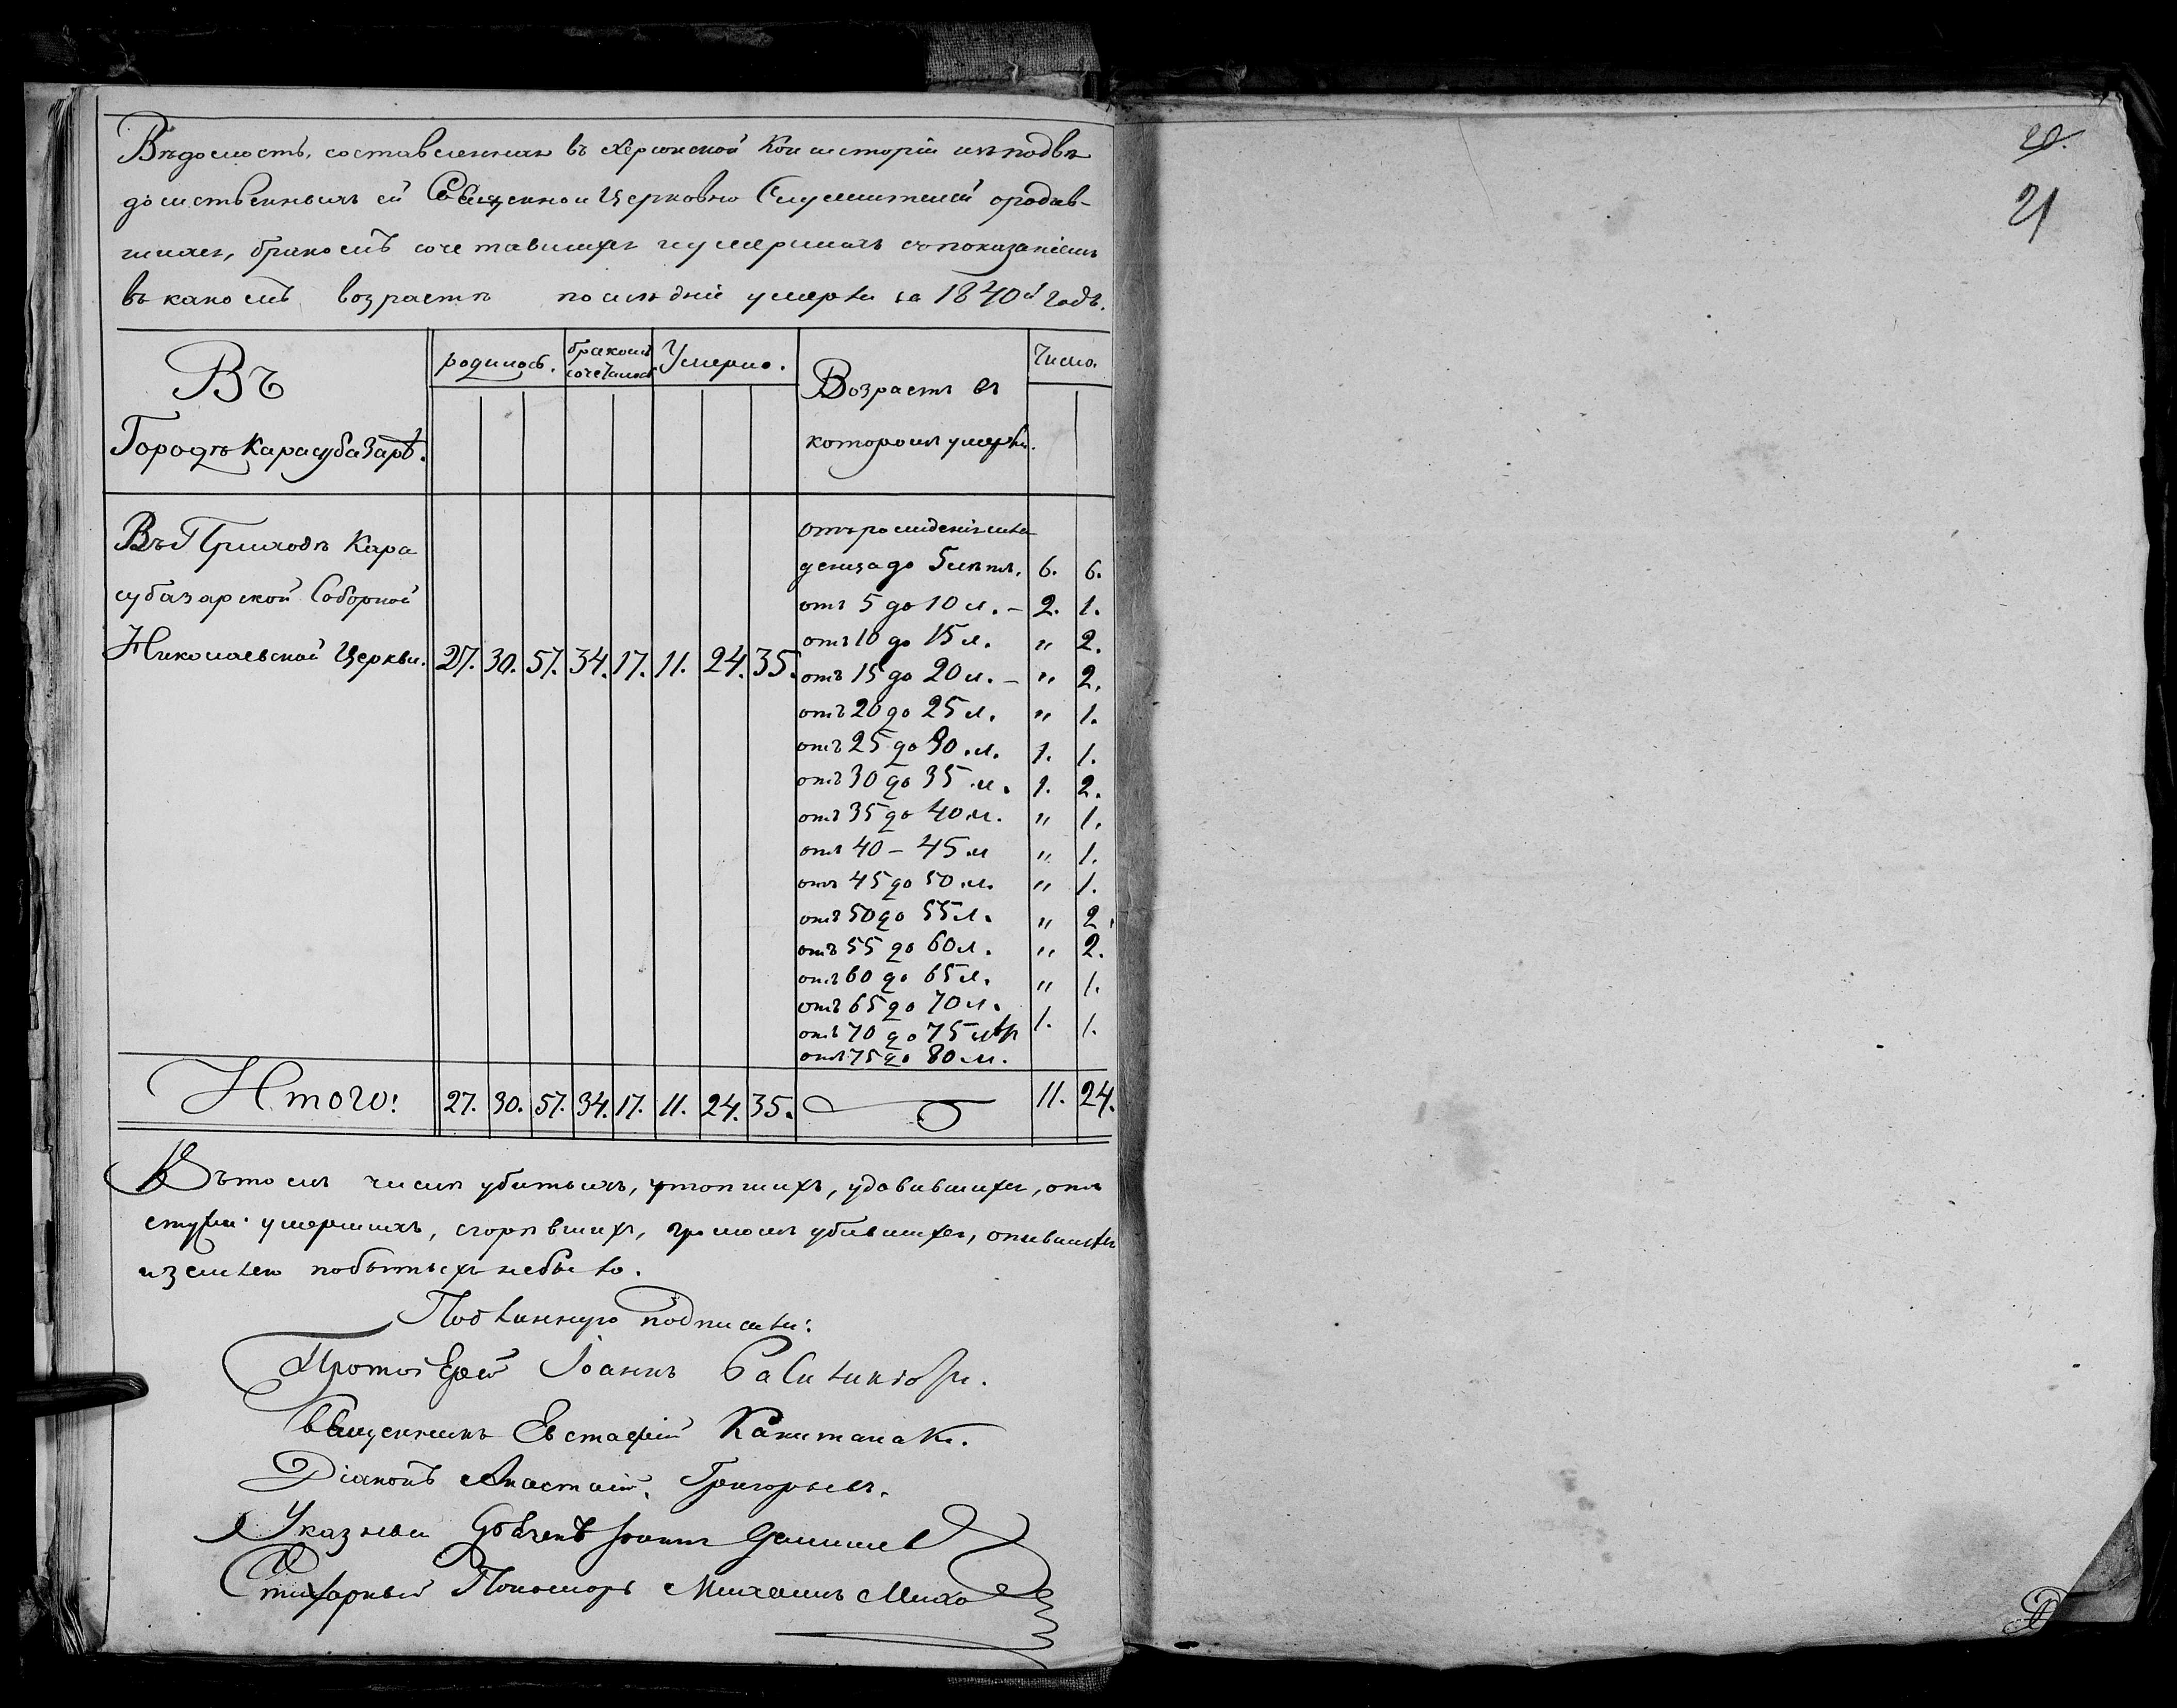 Вѣдомость, составленная въ Херсонской Консисторіи изъ подвѣ
домственныхъ ей Священно и Церковно Служителей о родив-
шихся, бракомъ сочетавшихся и умершихъ съ показаніемъ
въ какомъ возрастѣ послѣдніе умерли за 1840й годъ.
Въ
Городѣ Карасубазарѣ.
родилось.
бракомъ
сочеталось
Умерло.
Возрастъ въ
которомъ умерли.
Число.
Въ Приходѣ Кара
субазарской Соборной
Николаевской Церкви. 27. 30. 57. 34. 17. 11. 24. 35.
отъ рожденія мла
денца до 5 лѣтъ. 6. 6.
отъ 5 до 10 л. – 2. 1.
отъ 10 до 15 л. " 2.
отъ 15 до 20 л. – " 2.
отъ 20 до 25 л. " 1.
отъ 25 до 30 л. 1. 1.
отъ 30 до 35 л. 1. 2.
отъ 35 до 40 л. " 1.
отъ 40 – 45 л " 1.
отъ 45 до 50 л. " 1.
отъ 50 до 55 л. " 2.
отъ 55 до 60 л. " 2.
отъ 60 до 65 л. " 1.
отъ 65 до 70 л.
отъ 70 до 75 1. 1.
отъ 75 до 80 л.
Итого: 27. 30. 57. 34. 17. 11. 24. 35. 11. 24.
Въ томъ числѣ убитыхъ, утопшихъ, удавившихся, отъ
стужи умершихъ, сгорѣвшихъ, громомъ убившихся, опившихся
и землею побытыхъ небыло.
Подлинную подписали:
Протоіерей Іоаннъ
Священникъ Евстафій
Діаконъ Анастасій Григорьевъ.
Указный Іоаннъ
Стихарный Пономарь Михаилъ
20.
21